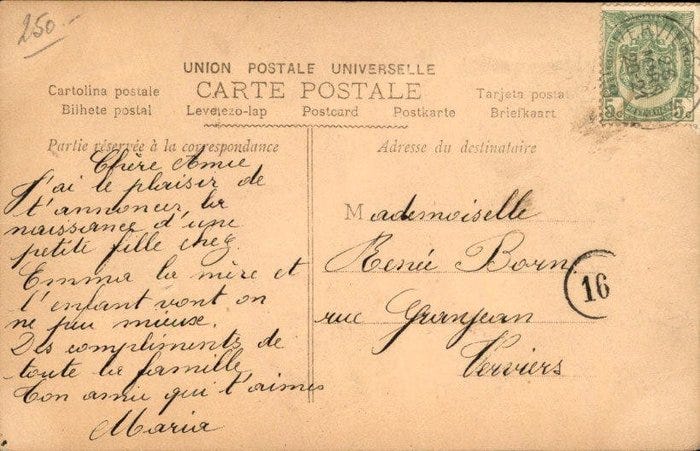 250
UNION POSTALE UNIVERSELLE
CARTE POSTALE
Cartolina postale
Tarjeta posta
Bilhete postal
Levelezo-lap
Postcard
Postkarte
Briefkaart
Partie réservée à la correspondance
Adresse du destinataire
Chère Amie
J'ai le plaisir de
t'annoncer la
naissance d'une
petite fille chez
Emma la mère et
l'enfant vont on
ne peu mieux.
Des compliments de
toute la famille
Ton amie qui t'aimes
Maria
Mademoiselle
Renée Born
rue Granjean
Verviers
16
5c 5c